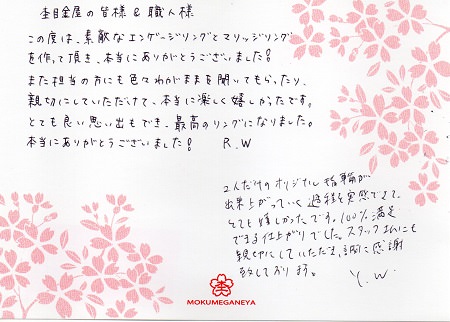 杢目金屋の皆様 & 職人様
この度は、素敵なエンゲージリングとマリッジリング
を作って頂き、本当にありがとうございました!
また担当の方にも色々わがままを聞いてもらったり、
親切にしていただけて、本当に楽しく嬉しかったです。
とても良い思い出もでき、最高のリングになりました。
本当にありがとうございました! R.W
2人だけのオリジナル指輪が
出来上がっていく過程を実感できて、
とても嬉しかったです。100%満足
できる仕上がりでした。スタッフさんにも
親切にしていただき、誠に感謝
致しております。 Y.W.
MOKUMEGANEYA